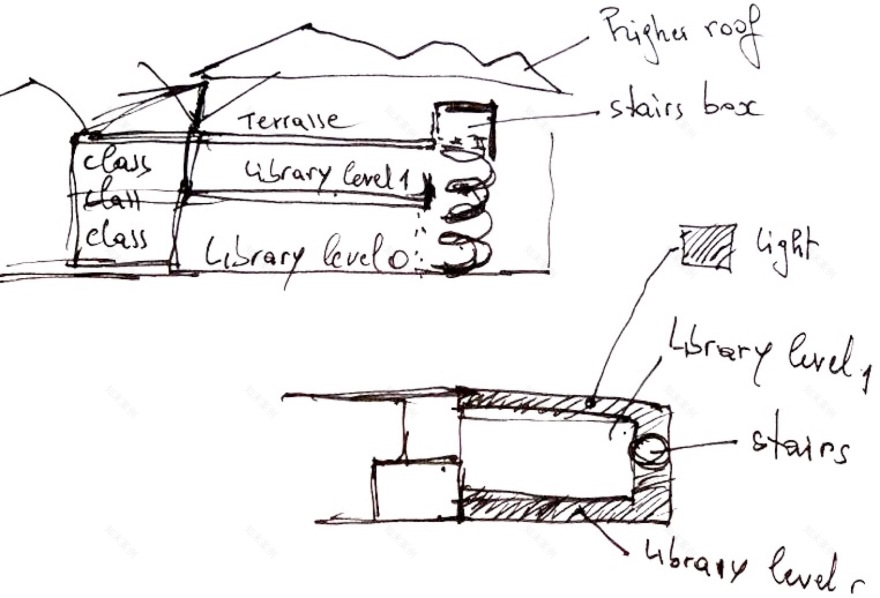 Higher roof
stairs box
Terrasse
class
Library level 1
class
class
Library level 0
light
Library level 1
stairs
Library level